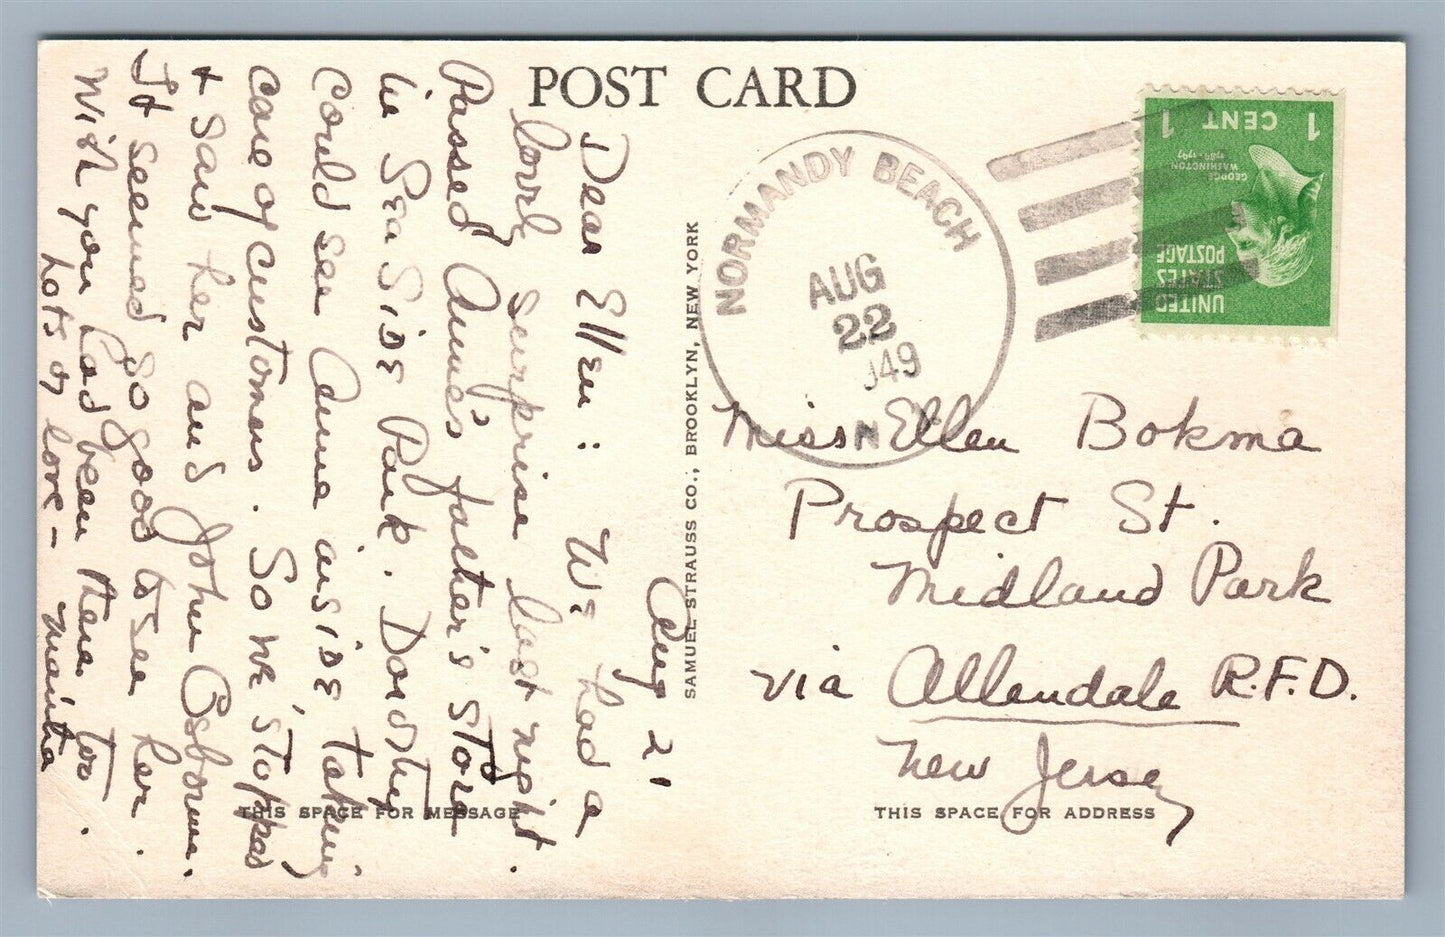 POST CARD
Aug 21
Dear Ellen: We had a
lovely surprise last night.
Passed Anne's father's store
in Sea Side Park. Dorothy
could see Anne inside taking
care of customers. So we stopped
+ saw her and John Osborne.
It seemed so good to see her.
Wish you had been there too.
Lots of love—
SAMUEL STRAUSS CO., BROOKLYN, NEW YORK
THIS SPACE FOR MESSAGE
NORMANDY BEACH
AUG
22
1949
N
1 CENT 1
GEORGE
WASHINGTON
1789-1797
UNITED
STATES
POSTAGE
Miss Ellen Bokma
Prospect St.
Midland Park
via Allendale R.F.D.
New Jersey
THIS SPACE FOR ADDRESS